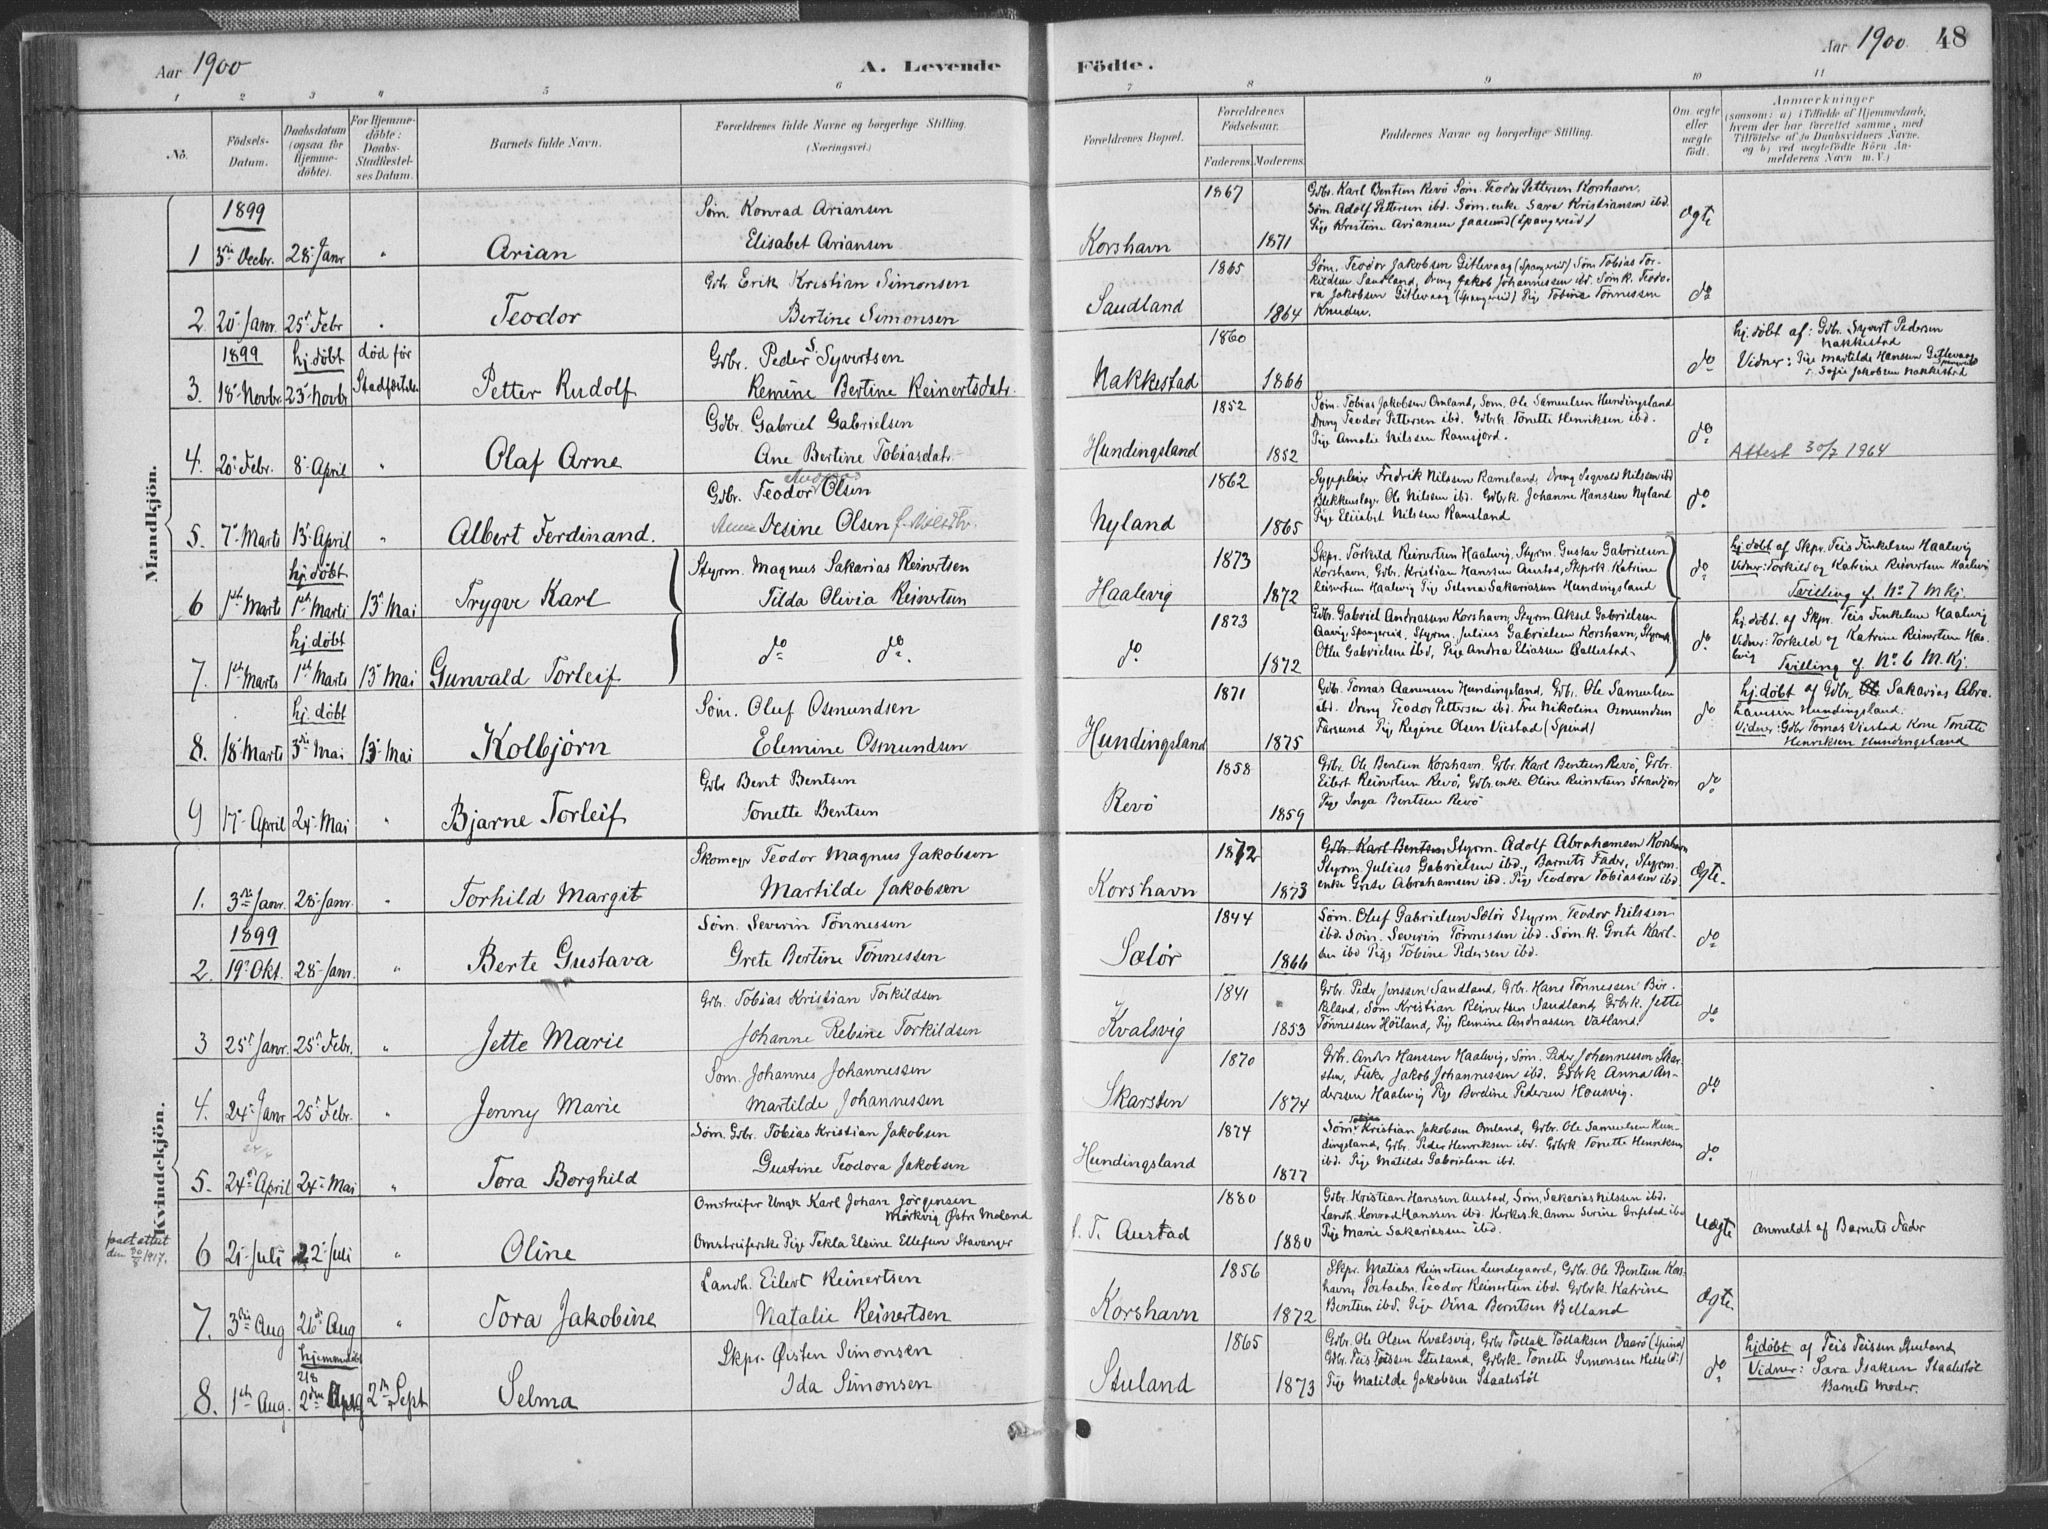 Aar 1900
A. Levende Födte.
Aar 1900. 48
1 2 3 4 5 6 7 8 9 10 11
No.
Födsels-Datum.
Daabsdatum (ogsaa for Hjemme-döbte).
For Hjemme-döbte: Daabs-Stadfæstel-ses Datum.
Barnets fulde Navn.
Forældrenes fulde Navne og borgerlige Stilling.
(Næringsvei.)
Forældrenes Bopæl.
Forældrenes Födselsaar.
Faderens. Moderens.
Faddernes Navne og borgerlige Stilling.
Om ægte eller uægte födt.
Anmærkninger
(saasom: a) i Tilfælde af Hjemmedaab, hvem der har forrettet samme, med Tilföielse af to Daabsvidners Navne, og b) ved uægtefödte Börn Anmelderens Navn m. V.)
Mandkjön.
1899
1 3die Decbr. 28 Janr " Arian
Søm. Konrad Ariansen
Elisabet Ariansen
Korshavn 1867 1871
Gdbr. Karl Bentsen Revö Søm. Teodor Pettersen Korshavn.
Søm Adolf Pettersen ibd. Søm. enke Sara Kristiansen ibd.
Pige Kristine Ariansen Jaasund (Spangereid)
Ægte
2 20 Janr. 25 Febr " Teodor
Gdb. Erik Kristian Simonsen
Bertine Simonsen
Saudland 1865 1864
Søm. Teodor Jakobsen Gitlevaag (Spangereid) Søm Tobias Tor-
kildsen Saudland, Dreng Jakob Johannessen ibd. Søm k. Teodo-
ra Jakobsen Gitlevaag (Spangereid) Pige Tobine Tønnessen
do
1899 hj. döbt død før
3. 18 Novbr. 23 Novbr Stadfæstelse Petter Rudolf
Gdbr. Peder S. Syvertsen
Remine Bertine Reinertsdatr.
Nakkestad 1860 1866
do
hj. döbt af: Gdbr. Syvert Pedersen
Nakkestad
Vidner: Pige Martilde Hanssen Gitlevaag
Sofie Jakobsen Nakkestad
4. 20 Febr. 8 April " Olaf Arne
Gdbr. Gabriel Gabrielsen
Ane Bertine Tobiasdatr.
Hundingsland 1852 1852
Søm. Tobias Jakobsen Omland, Søm. Ole Samuelsen Hundingsland
Dreng Teodor Pettersen ibd. Gdbrk Tonette Henriksen ibd.
Pige Amalie Nilssen Ramsjord.
do
Attest 30/7 1964
5. 7 Marts 13 April " Albert Ferdinand.
Gdbr. Teodor Olsen
Desine Olsen
Nyland 1862 1865
Sygepleier Fredrik Nilssen Rameland, Dreng Segvald Nilssen ibd
Blekkenslager Ole Nilssen ibd. Gdbrk. Johanne Hanssen Nyland
Pige Elisabet Nilssen Rameland
do
hj. döbt
6 1ste Marts 1ste Marts 13 Mai Trygve Karl
Styrm. Magnus Sakarias Reinertsen
Tilda Olivia Reinertsen
Haalevig 1873 1872
Skpr. Torkild Reinertsen Haalvig, Styrm. Gustav Gabrielsen
Korshavn, Gdbr. Kristian Hanssen Austad, Skprk. Katrine
Reinertsen Haalvig Pige Selma Sakariasen Hundingsland
do
hj. döbt af Skpr. Teis Finkelsen Haalvig
Vidner: Torkild og Katrine Reinertsen Haalvig
Tvilling af No 7 M kj.
hj. döbt
7. 1ste Marts 1ste Marts 13 Mai Gunvald Torleif
do do.
do. 1873 1872
Gdbr. Gabriel Andreassen Korshavn, Styrm Aksel Gabrielsen
Aavig, Spangereid, Styrm. Julius Gabrielsen Korshavn, Styrmk
Otte Gabrielsen ibd, Pige Andrea Eliassen Ballestad
do.
hj. döbt. af Skpr. Teis Finkelsen Haalvig
Vidner: Torkeld og Katrine Reinertsen Haa-
lvig
Tvilling af No 6 M. Kj.
hj. döbt
8. 18 Marts 3die Mai 13 Mai Kolbjørn
Søm. Oluf Osmundsen
Elemine Osmundsen
Hundingsland 1871 1875
Gdbr. Tomas Aanensen Hundingsland, Gdbr. Ole Samuelsen
ibd. Dreng Teodor Pettersen ibd. Fru Nikoline Osmundsen
Farsund Pige Regine Olsen Viestad (Spind)
do
hj. döbt af Gdbr. Sakarias Abra-
hamsen Hundingsland.
Vidner: Gdbr Tomas Viestad Kone Tonette
Henriksen Hundingsland
9 17 April 24 Mai " Bjarne Torleif
Gdbr Bent Bentsen
Tonette Bentsen
Revö 1858 1859
Gdbr. Ole Bentsen Korshavn, Gdbr. Karl Bentsen Revö, Gdbr.
Eilert Reinertsen Revö, Gdbr. enke Oline Reinertsen
Pige Inga Bentsen Revö
do
Kvindekjön.
1. 3die Janr. 28 Janr. " Torhild Margit
Skomagr Teodor Magnus Jakobsen
Martilde Jakobsen
Korshavn 1872 1873
Gdbr. Karl Bentsen Styrm. Adolf Abrahamsen Korshavn
Styrm Julius Gabrielsen ibd., Barnets Fader, Styrm.
enke Grete Abrahamsen ibd. Pige Teodora Tobiassen ibd
Ægte.
1899
2. 19 Okt. 28 Janr. " Berte Gustava
Søm. Severin Tönnessen
Grete Bertine Tönnessen
Sælør 1844 1866
Søm. Oluf Gabrielsen Sælör Styrm. Teodor Nilssen
ibd. Søm. Severin Tönnessen ibd. Søm. k. Grete Karl-
sen ibd Pige Tobine Pedersen ibd.
do
3 25 Janr. 25 Febr. " Jette Marie
Gdbr. Tobias Kristian Torkildsen
Johanne Rebine Torkildsen
Kvalsvig 1841 1853
Gdbr. Peder Jenssen Saudland, Gdbr. Hans Tönnessen Bir-
keland, Søm Kristian Reinertsen Saudland, Gdbrk. Jette
Tönnessen Höiland, Pige Remine Andreassen Vatland.
do
4. 24 Janr 25 Febr. " Jenny Marie
Søm. Johannes Johannessen
Martilde Johannessen
Skarsten 1870 1874
Gdbr. Anders Hanssen Haalvig, Søm. Peder Johannessen Skar-
sten, Fisker Jakob Johannessen ibd. Gdbrk Anna An-
derssen Haalvig Pige Berdine Pedersen Housvig.
do
5. 24 April 24 Mai " Tora Borghild
Søm. Gdbr. Tobias Kristian Jakobsen
Gustine Teodora Jakobsen
Hundingsland 1874 1877
Søm. Tobias Kristian Jakobsen Omland, Gdbr. Ole Samuelsen Hun-
dingsland, Gdbr. Peder Henriksen ibd. Gdbrk Tonette Henriksen
ibd. Pige Matilde Gabrielsen ibd.
do.
den 20/8 1917.
6 21 Juli 22 Juli " Oline
Omstreifer Ungk Karl Johan Jörgensen
Mörkvig Østre Moland
Omstreiferske Pige Tekla Elsine Ellefsen Stavanger
f. T. Austad 1880 1880
Gdbr. Kristian Hanssen Austad, Søm. Sakarias Nilssen ibd.
Landh. Konrad Hanssen ibd. Kerkes. k. Anne Serine Drifstad ibd
Pige Marie Sakariassen ibd.
Uægte
Anmeldt af Barnets Fader
7. 3die Aug 26de Aug " Tora Jakobine
Landh. Eilert Reinertsen
Natalie Reinertsen
Korshavn 1856 1872
Skpr. Matias Reinertsen Lundegaard, Gdbr. Ole Bentsen Kors-
havn, Postaabn. Teodor Reinertsen ibd. Gdbrk Katrine
Bentsen ibd. Pige Vina Berntsen Belland
Ægte.
hjemmedöbt
2/8
8. 1ste Aug. 2den Aug 2den Sept Selma
Skpr. Øisten Simonsen
Ida Simonsen
Stuland 1865 1873
Gdbr. Ole Olsen Kvalsvig, Gdbr Tollak Tollaksen Vaarö (Spind)
Gdbr. Teis Teissen Stuland, Gdbrk Tonette Simonsen Helle
Pige Matilde Jakobsen Staalestöl
do.
hjdöbt af Teis Teissen Stuland
Vidner: Sara Isaksen Staalestöl
Barnets Moder.